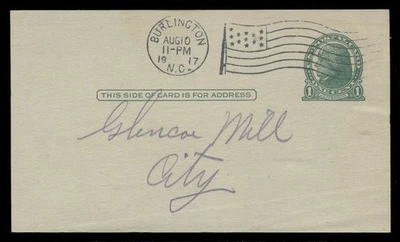 BURLINGTON
AUG 10
11-PM
19 17
N.C.
THIS SIDE OF CARD IS FOR ADDRESS
1 1
Glencoe Mill
City